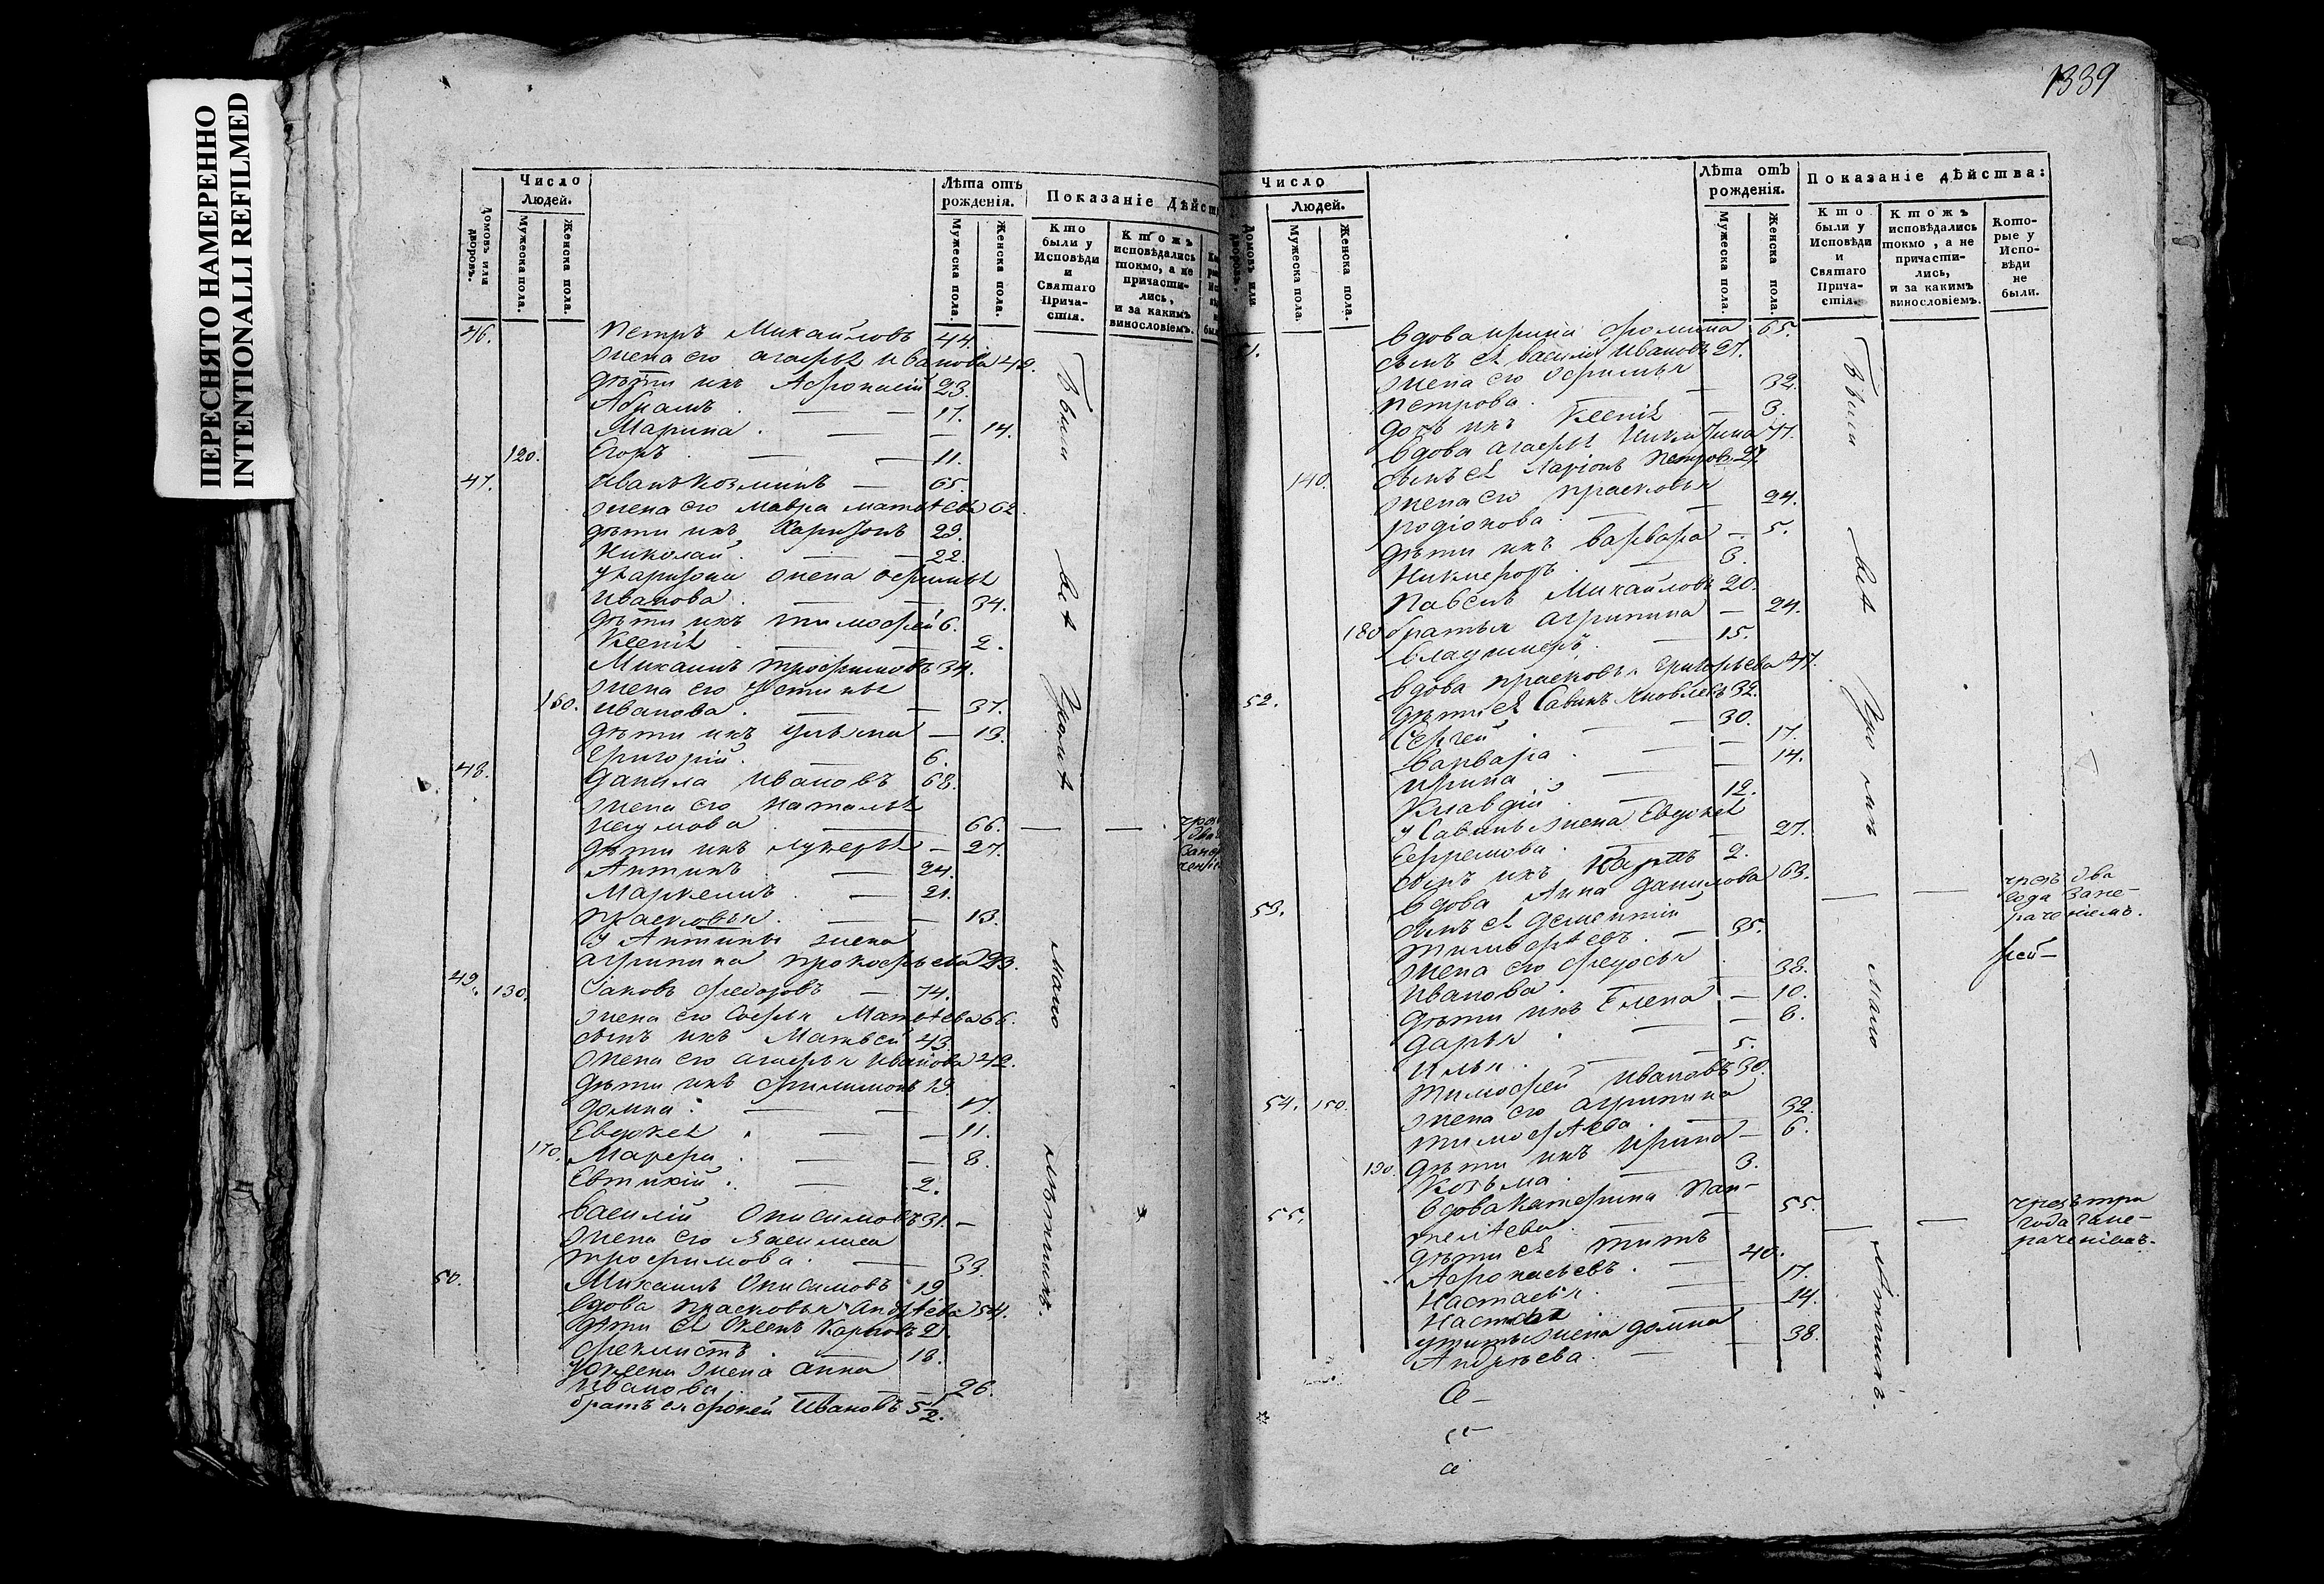 ПЕРЕСНЯТО НАМЕРЕННО
INTENTIONALLI REFILMED
1339
Число
Людей.
Домовъ или дворовъ.
Мужеска пола.
Женска пола.
Лѣта отъ
рожденія.
Мужеска пола.
Женска пола.
Показаніе Дѣйст
Кто
были у
Исповѣди
и
Святаго
Прича-
стія.
Ктожъ
исповѣдались
токмо, а не
причасти-
лись,
и за какимъ
винословіемъ.
46. Петръ Михайловъ 44.
жена его агафья Иванова 42.
дѣти ихъ Афонасій 23.
Абрамъ 17.
Марина 14.
120. Егоръ 11.
47. Иванъ Козминъ 65.
жена его мавра матвѣева 62.
дѣти ихъ Харитонъ 29.
Николай 22.
у харитона жена
Иванова 34.
дѣти ихъ тимофей 6.
Ксенія 2.
Михаилъ трофимовъ 34.
жена его устинья
160. Иванова 37.
дѣти ихъ ульяна 13.
Григорій 6.
48. Данила Ивановъ 68.
жена его наталья
наумова 66.
дѣти ихъ лукерья 27.
Антипъ 24.
Маркелъ 21.
прасковья 13.
у Антипы жена
агрипина прокофьева 23.
49. 130. Іаковъ Федоровъ 74.
жена его Софья Матвѣева 66.
сынъ ихъ Матвей 43.
жена его агафья Иванова 42.
дѣти ихъ филимонъ 19.
домна 17.
Евдокея 11.
170. Марфа 8.
Евтихій 2.
василій Онисимовъ 31.
жена его василиса
трофимова 33.
50. Михаилъ Онисимовъ 19
вдова прасковья 54.
дѣти ея Карповъ 21.
феклистъ 18.
жена анна
Иванова 26.
братъ ея фокей Ивановъ 52.
Были
всѣ
Храмѣ
мало
лѣтнихъ.
Число
Людей.
Домовъ или дворовъ.
Мужеска пола.
Женска пола.
Лѣта отъ
рожденія.
Мужеска пола.
Женска пола.
Показаніе дѣйства:
Кто
были у
Исповѣди
и
Святаго
Прича-
стія.
Ктожъ
исповѣдались
токмо, а не
причасти-
лись,
и за какимъ
винословіемъ.
Кото-
рые у
Испо-
вѣди
не
были.
вдова ирина фомина 65.
сынъ ея василій Ивановъ 27.
жена его
петрова 32.
дочь ихъ Ксенія 3.
вдова агафья Никитина
140. сынъ ея Ларіонъ Петровъ 27
жена его прасковья
родіонова 24.
дѣти ихъ варвара 5.
Никифоръ 3.
Павелъ Михайловъ 20.
180 братья агрипина 24.
владимеръ 15.
вдова прасковья григорьева 47.
52. дѣти ея Савинъ Яковлевъ 32.
Сергей 30.
варвара 17.
ирина 14.
Клавдій 12.
у Савина жена Евдокея
Ефремова 27.
сынъ ихъ Карпъ 2.
53. вдова Анна данилова 63.
сынъ ея дементій
тимофѣевъ 35.
жена его федосья
Иванова 38.
дѣти ихъ Елена 10.
дарья 6.
илья 5.
тимофей Ивановъ 30.
54. 150. жена его агрипина
тимофѣева 32.
дѣти ихъ ирина 6.
190 Козьма 3.
55. вдова Катерина Пан-
телѣева 55.
дѣти ея титъ
Афонасьевъ 40.
Настасья 17.
Настасья 14.
у титы жена домна
Андреева 38.
Были
всѣ
мало
лѣтнихъ.
чрезъ два
года
чрезъ три
года